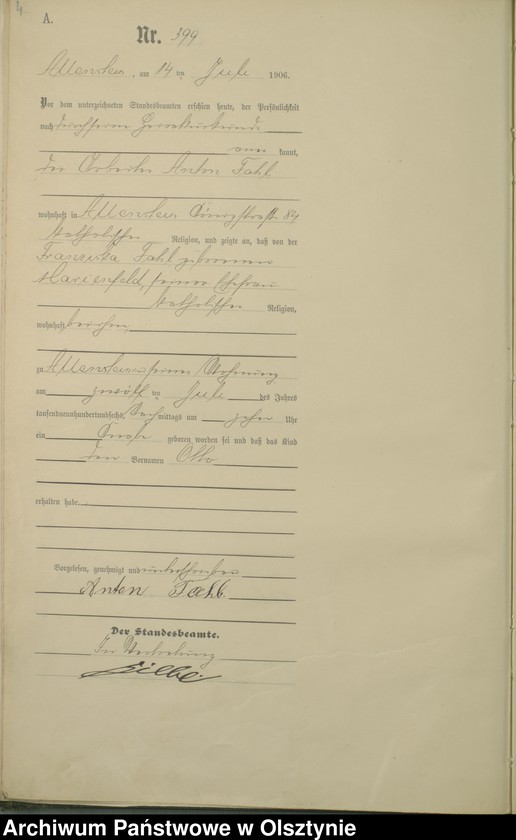 4
A.
Nr. 399
Allenstein, am 14 ten Juli 1906.
Vor dem unterzeichneten Standesbeamten erschien heute, der Persönlichkeit
nach
kannt,
der Arbeiter Anton Fahl
wohnhaft in Allenstein Königstraße 84
katholischer Religion, und zeigte an, daß von der
Franziska Fahl geborenen
Marienfeld, seiner Ehefrau
katholischer Religion,
wohnhaft bei ihm
zu Allenstein in seiner Wohnung
am zwölf ten Juli des Jahres
tausendneunhundertundsechs, Nachmittags um zehn Uhr
ein Knabe geboren worden sei und daß das Kind
den Vornamen Otto
erhalten habe.
Vorgelesen, genehmigt und unterschrieben
Anton Fahl.
Der Standesbeamte.
In Vertretung
Archiwum Państwowe w Olsztynie